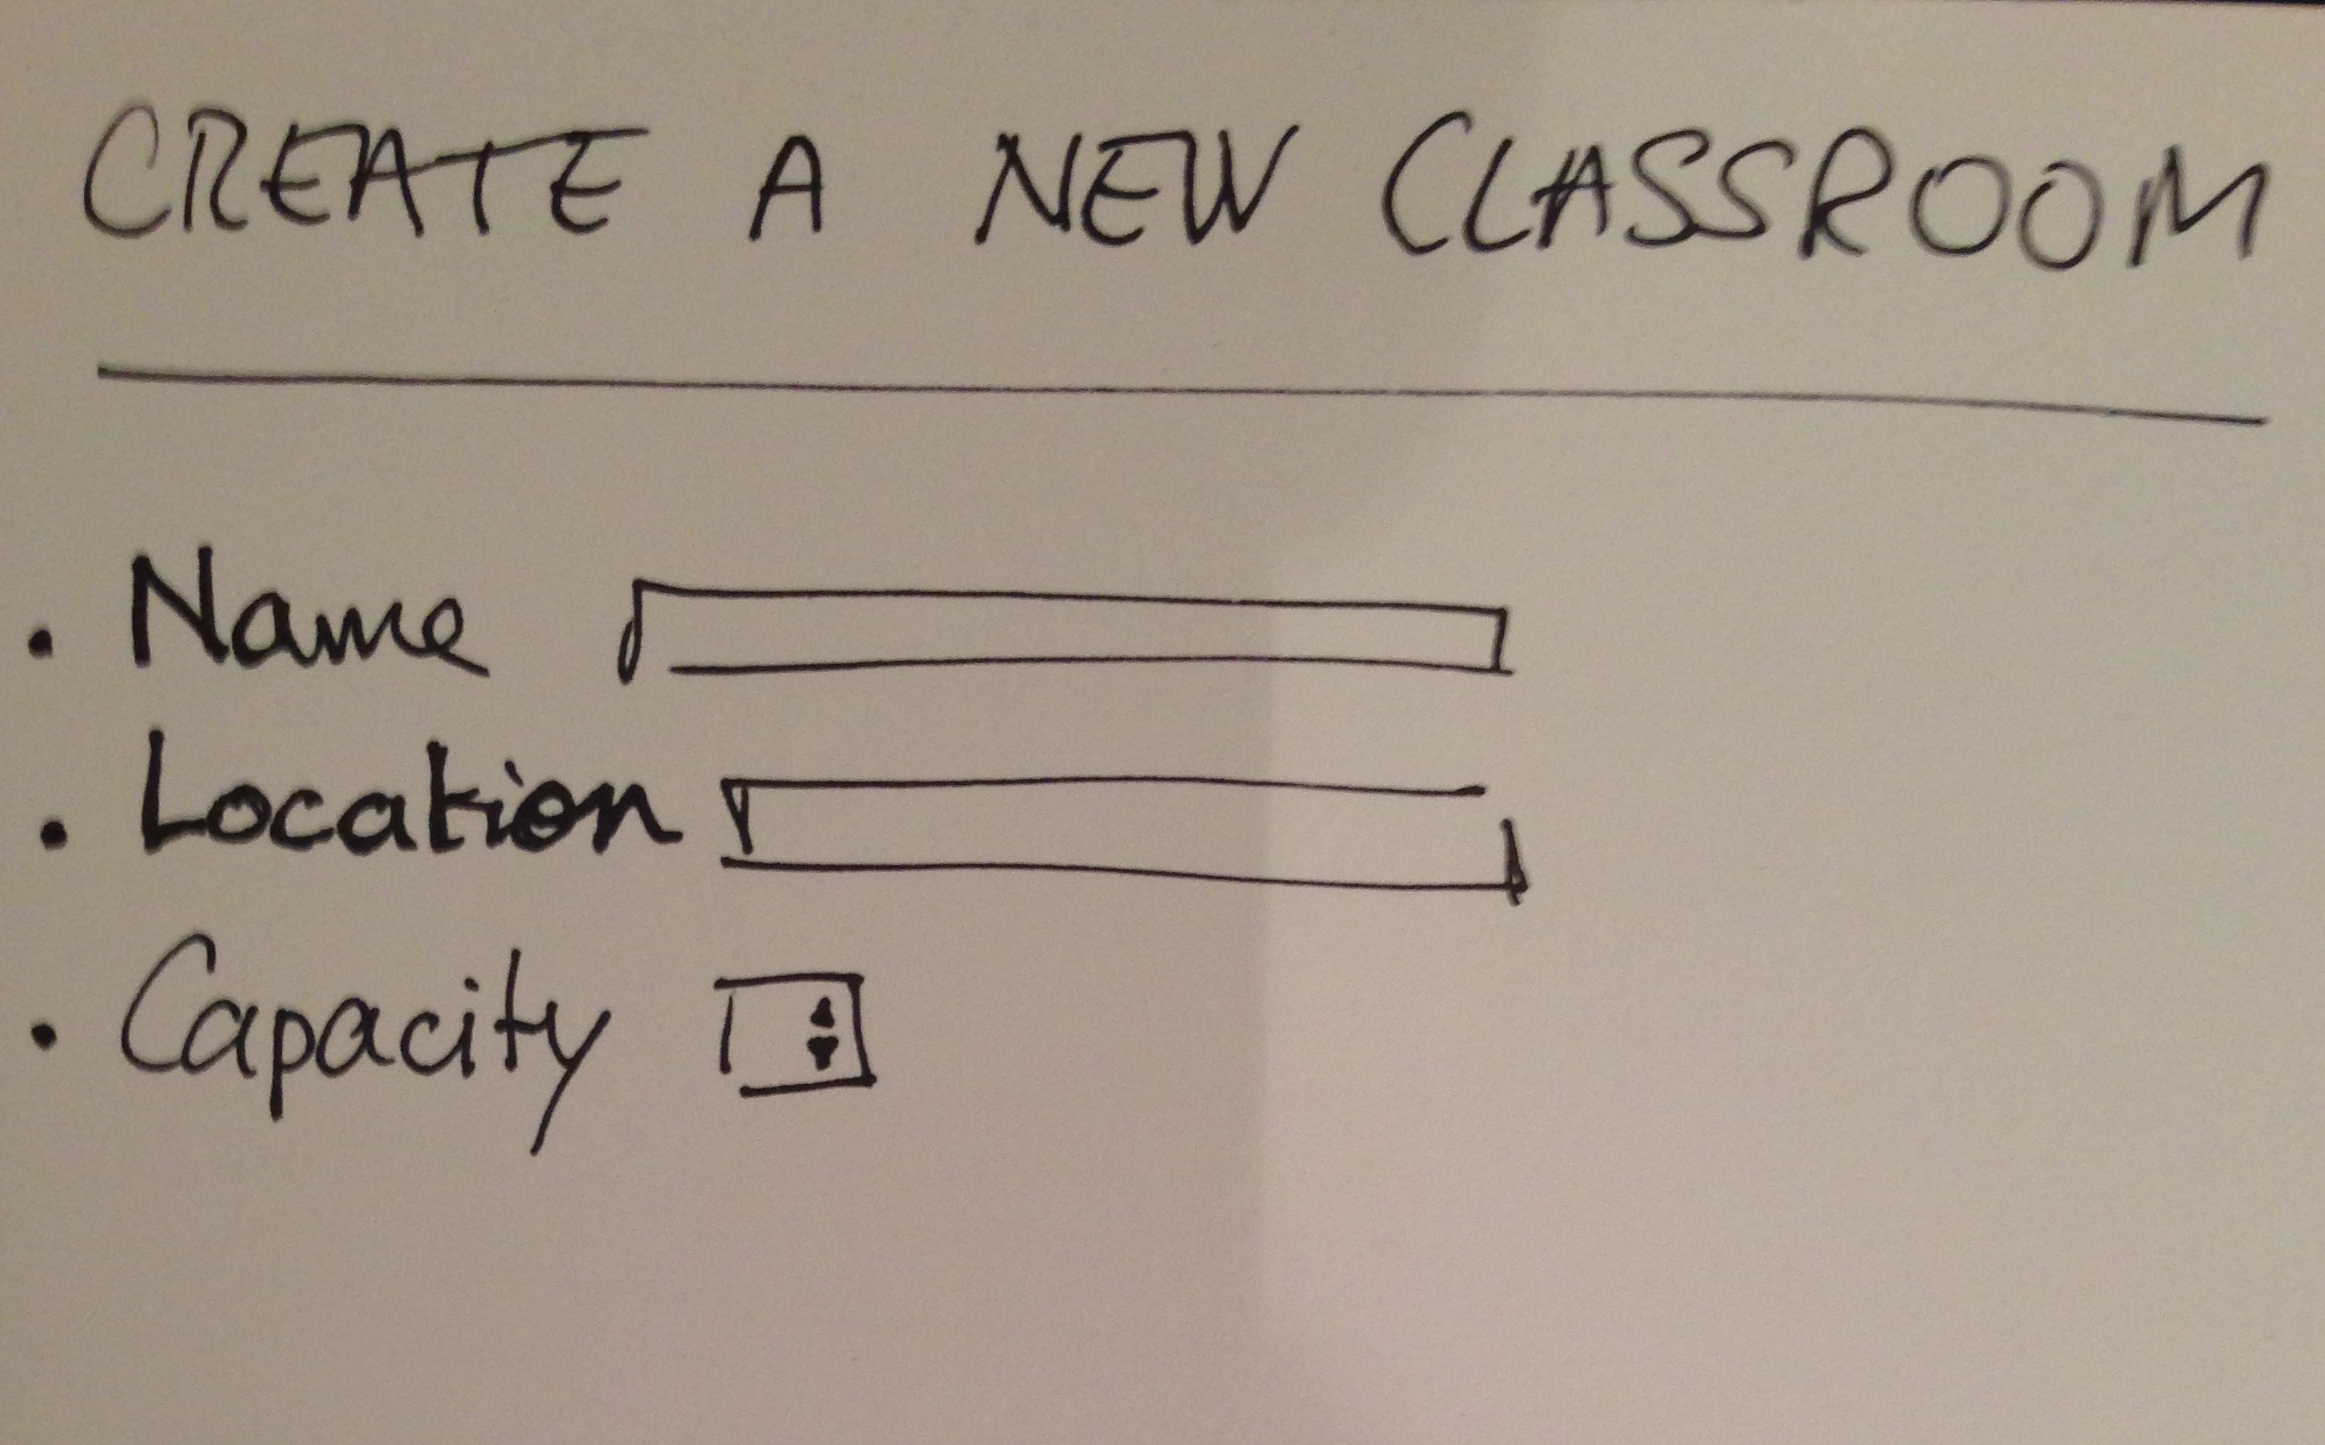 CREATE A NEW CLASSROOM
. Name
. Location
. Capacity